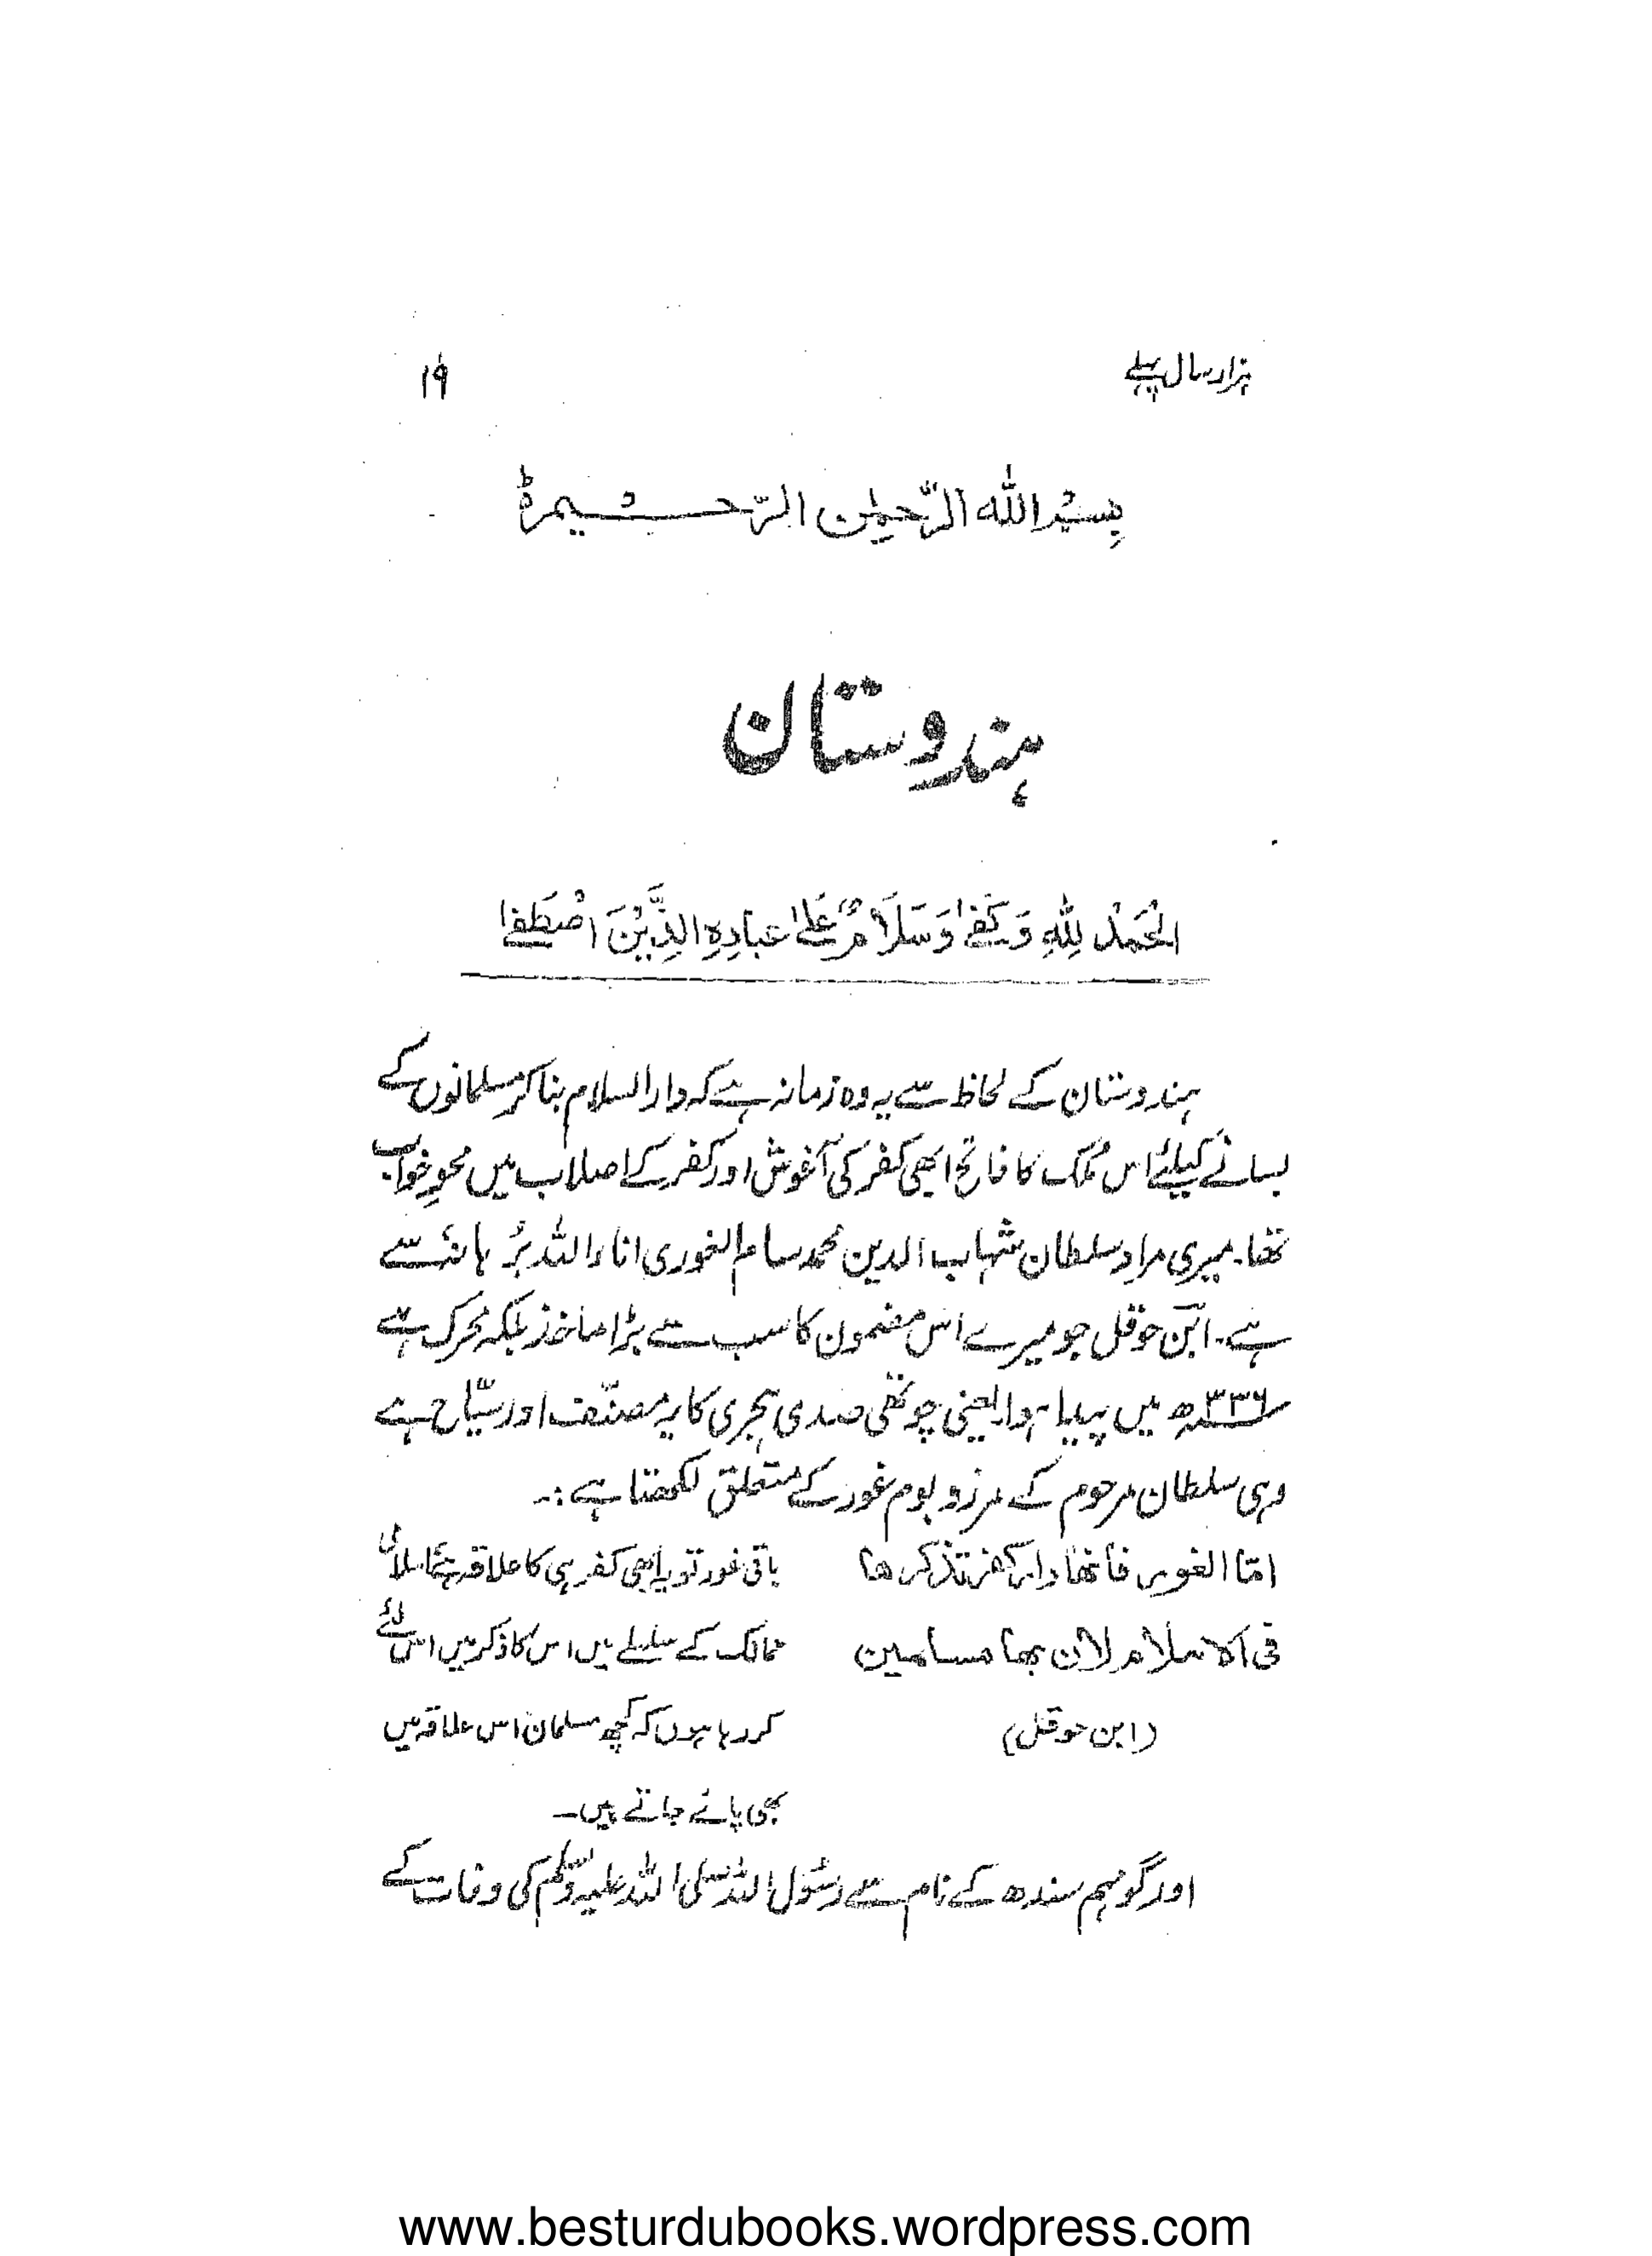 ہزار سال پہلے
۱۹
بِسْمِ اللهِ الرَّحْمٰنِ الرَّحِیْمِ ط
ہندوستان
اَلْحَمْدُ لِلّٰهِ وَکَفٰی وَسَلَامٌ عَلٰی عِبَادِهِ الَّذِیْنَ اصْطَفٰی
ہندوستان کے لحاظ سے یہ وہ زمانہ ہے کہ دارالسلام بنا کر مسلمانوں کے
بسانے کیلئے اس ملک کا فاتح ابھی کفر کی آغوش اور کفر کے اصلاب میں محوِ خواب
تھا۔ میری مراد سلطان شہاب الدین محمد سام الغوری انار اللہ برہانہٗ سے
ہے۔ ابن حوقل جو میرے اس مضمون کا سب سے بڑا ماخذ بلکہ محرک ہے
۳۳۶ھ میں پیدا ہوا یعنی چوتھی صدی ہجری کا یہ مصنّف اور سیّاح ہے
وہی سلطان مرحوم کے مرز و بوم غور کے متعلق لکھتا ہے :۔
امّا الغور فانھا دار کفر تذکرھا
فی الاسلام لان بھا مسلمین
(ابن حوقل)
باقی غور تو یہ ابھی کفر ہی کا علاقہ ہے اسلامی
ممالک کے سلسلے میں اس کا ذکر میں اس لئے
کر رہا ہوں کہ کچھ مسلمان اس علاقہ میں
بھی پائے جاتے ہیں۔
اور گو ہم سندھ کے نام سے رسُول اللہ صلی اللہ علیہ وسلم کی وفات کے
www.besturdubooks.wordpress.com